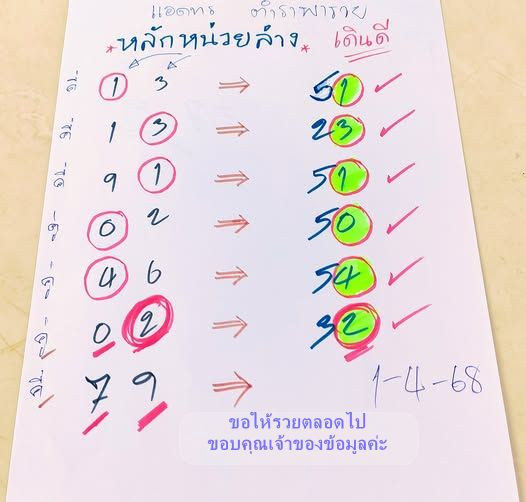 แอดทร ตำราพารวย
*หลักหน่วยล่าง* เดินดี
1 3 ⇒ 51 ✓
1 3 ⇒ 23 ✓
9 1 ⇒ 51 ✓
0 2 ⇒ 50 ✓
4 6 ⇒ 54 ✓
0 2 ⇒ 32 ✓
7 9 ⇒ 1-4-68
ขอให้รวยตลอดไป
ขอบคุณเจ้าของข้อมูลค่ะ